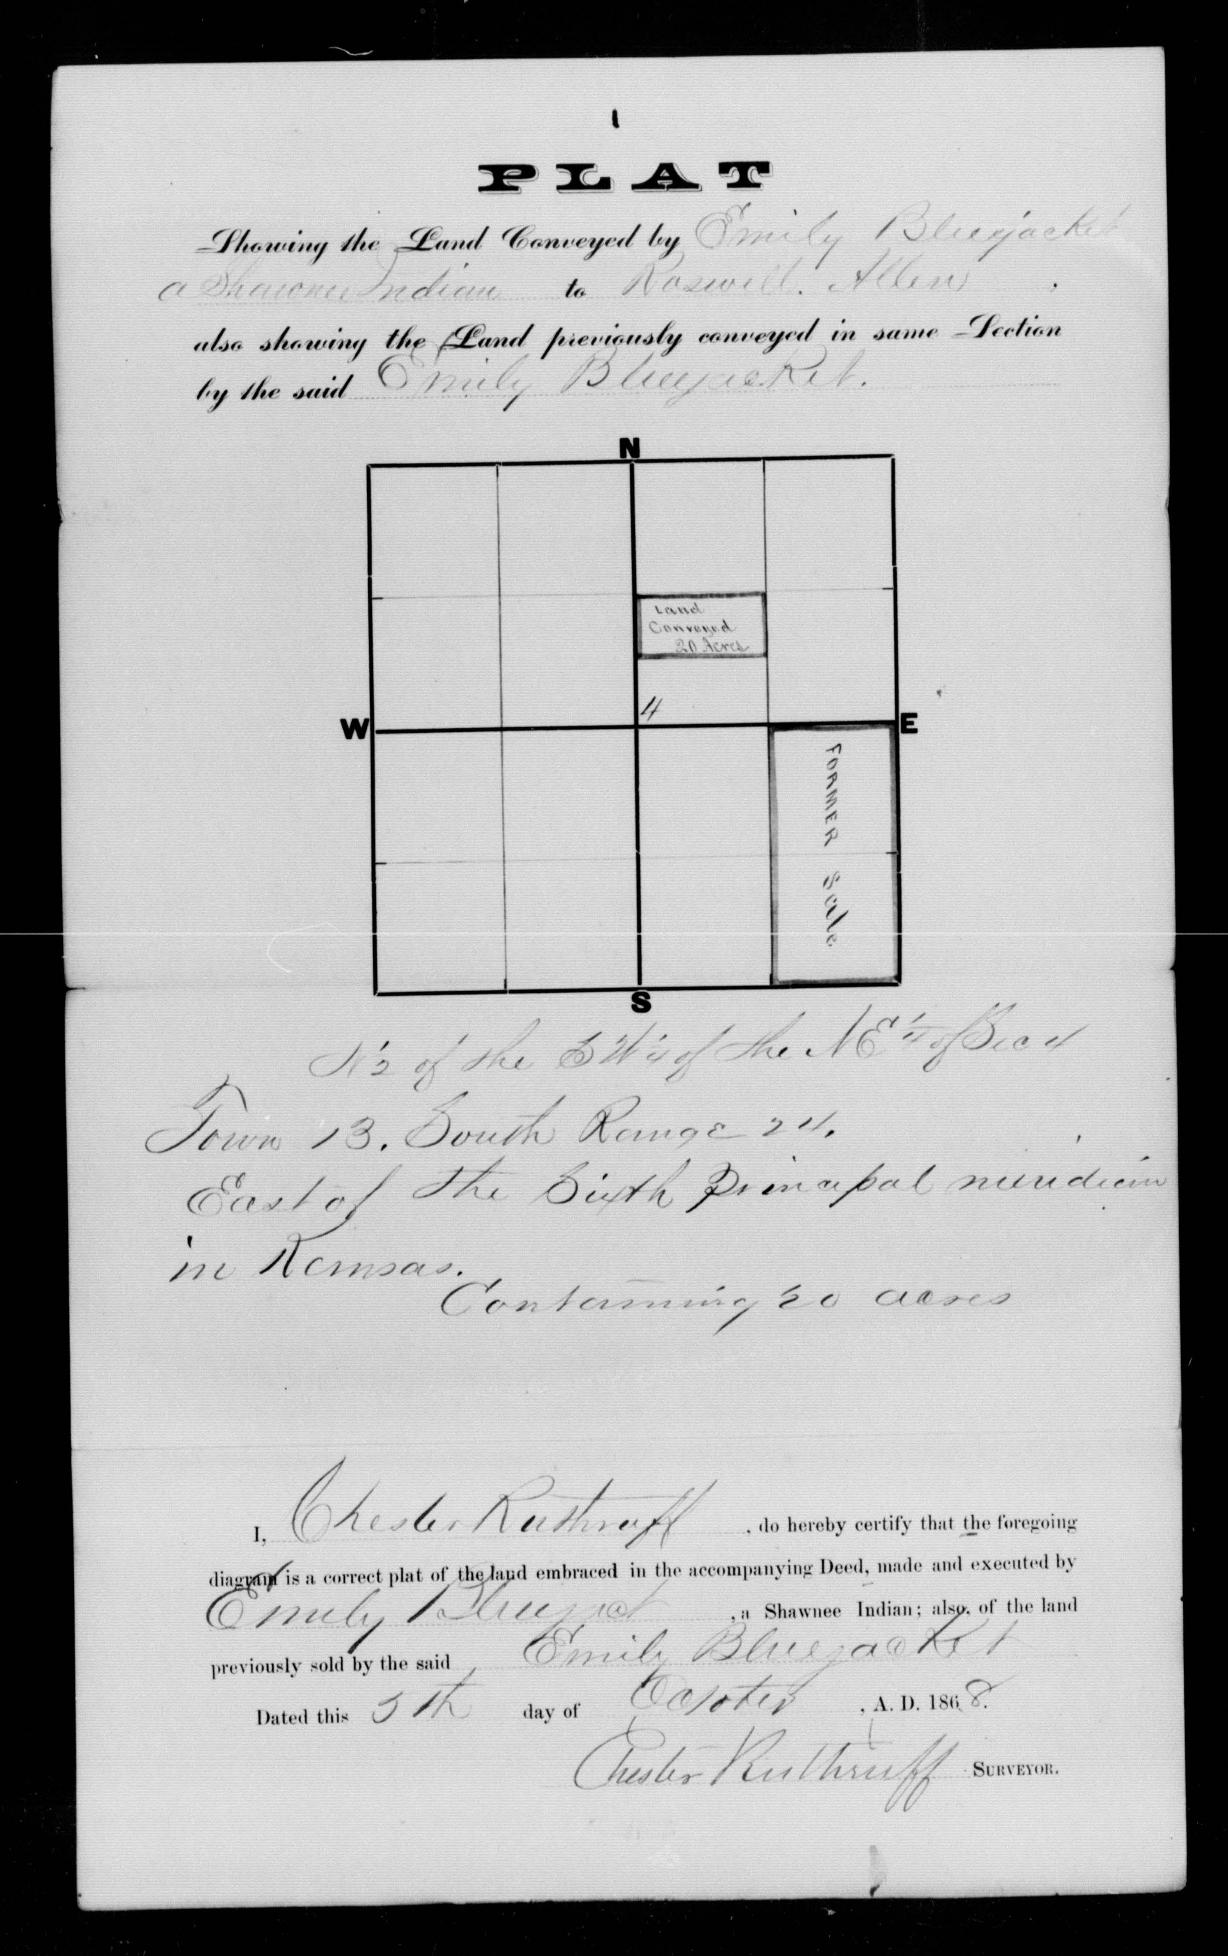 1
PLAT
Showing the Land Conveyed by Emily Bluejacket
a Shawnee Indian to Roswell. Allen .
also showing the Land previously conveyed in same Section
by the said Emily Bluejacket.
N
Land
Conveyed
20 Acres
4
W
E
FORMER Sale
S
N ½ of the S W ¼ of the N E ¼ of Sec 4
Town 13. South Range 24.
East of the Sixth Principal meridian
in Kansas.
Containing 20 acres
I, Chester Ruthruff , do hereby certify that the foregoing
diagram is a correct plat of the land embraced in the accompanying Deed, made and executed by
Emily Bluejact , a Shawnee Indian; also, of the land
previously sold by the said Emily Bluejacket
Dated this 5th day of October , A. D. 1868.
Chester Ruthruff SURVEYOR.